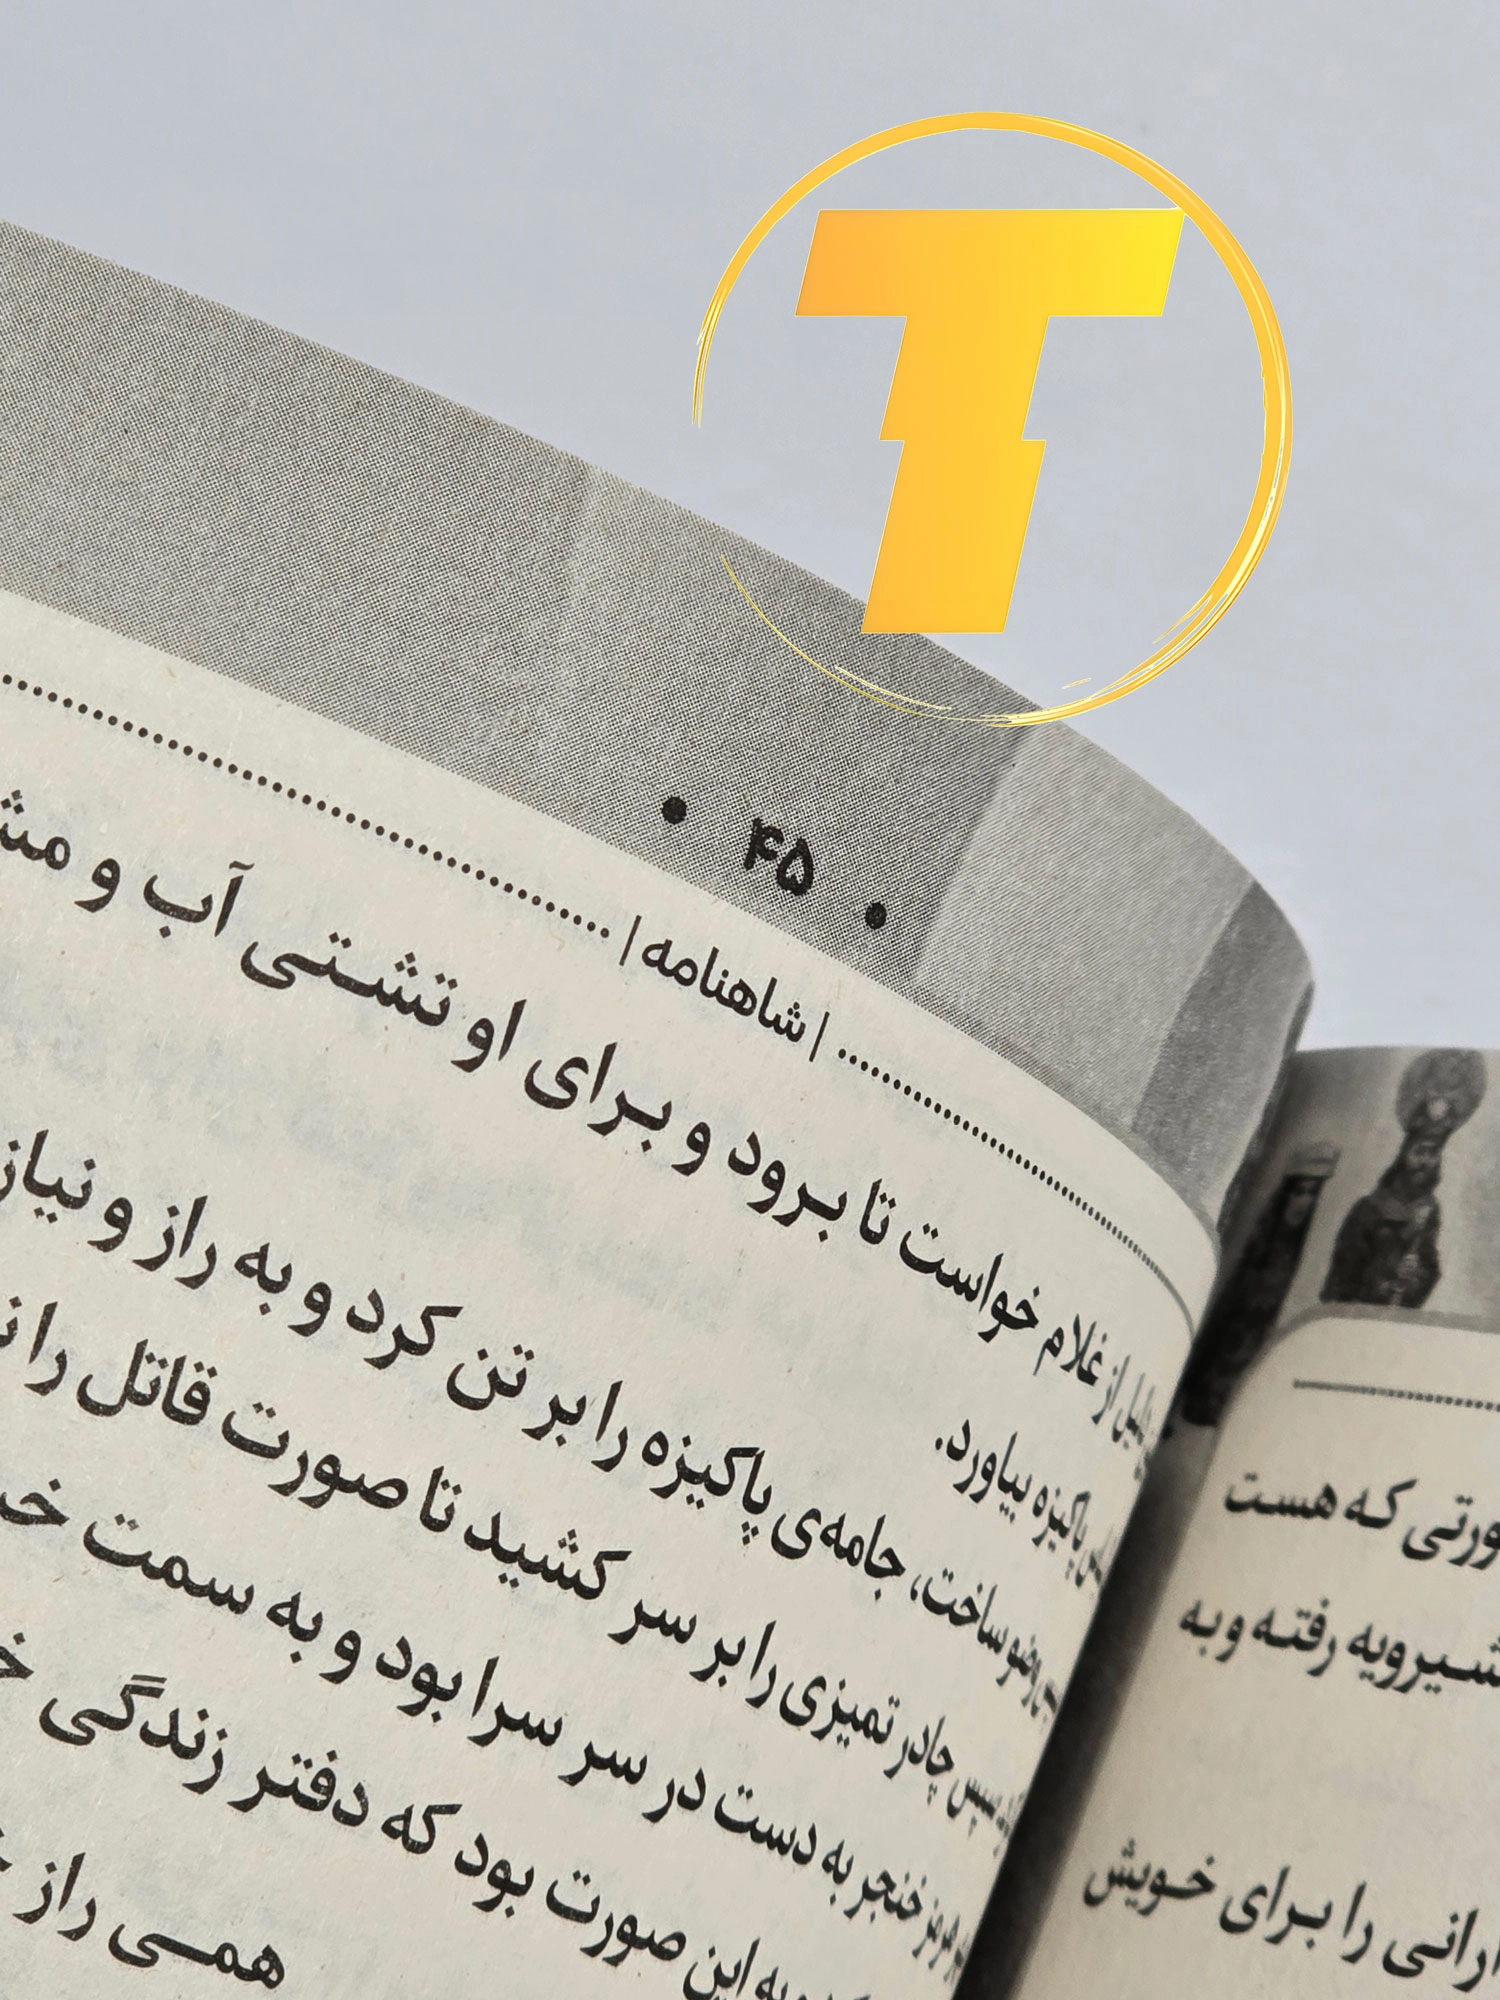 T
• ۴۵ •
| شاهنامه |
از غلام خواست تا برود و برای او تشتی آب و
پاکیزه بیاورد.
وضو ساخت، جامه‌ی پاکیزه را بر تن کرد و به راز و نیاز
سپس چادر تمیزی را بر سر کشید تا صورت قاتل را
هرمز خنجر به دست در سر سرا بود و به سمت
به این صورت بود که دفتر زندگی
همی راز
که هست
شیرویه رفته و به
را برای خویش